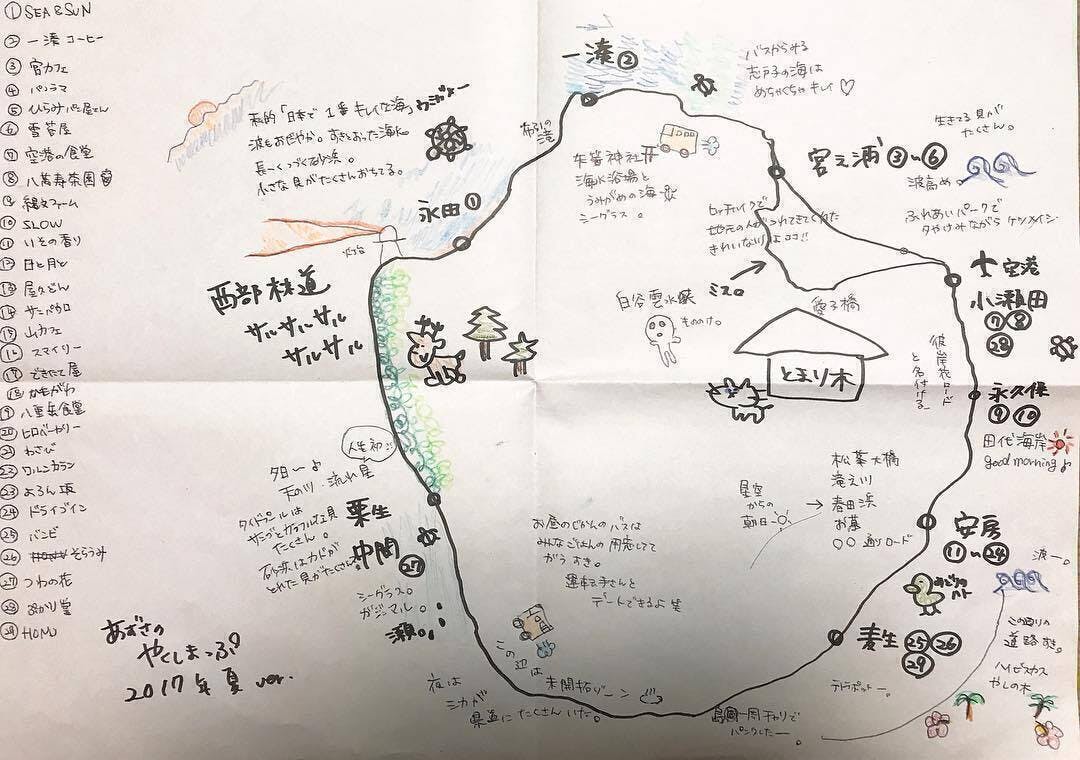 ① SEA & SUN
② 一湊 コーヒー
③ 宮カフェ
④ パノラマ
⑤ ひらみパン屋さん
⑥ 雪苔屋
⑦ 空港の食堂
⑧ 八萬寿茶園
⑨ 縄文ファーム
⑩ SLOW
⑪ いその香り
⑫ 日と月と
⑬ 屋久どん
⑭ サンパウロ
⑮ 山カフェ
⑯ スマイリー
⑰ できたて屋
⑱ かもがわ
⑲ 八重岳食堂
⑳ ヒロベーカリー
㉑ わさび
㉒ ワルンカラン
㉓ よろん坂
㉔ ドライブイン
㉕ バンビ
㉖ そらうみ
㉗ つわの花
㉘ あかり堂
㉙ HONU
あずさの
やくしまっぷ
2017年 夏 ver.
私的「日本で1番キレイな海」
波もおだやか。すきとおった海水。
長〜くつづく砂浜。
小さな貝がたくさんおちてる。
永田①
灯台
布引の滝
一湊②
バスからみる
志戸子の海は
めちゃくちゃキレイ♡
矢筈神社
海水浴場と
うみがめの海
シーグラス。
宮之浦③〜⑥
生きてる貝が
たくさん。
波高め。
ふれあいパークで
夕やけみながら ケツメイシ
ヒッチハイクで
地元の人がつれてきてくれた
きれいな川はココ!!
空港
小瀬田
⑦⑧
㉘
白谷雲水峡
もののけ。
愛子橋
とまり木
彼岸花ロード
と名付ける。
永久保
⑨⑩
田代海岸
good morning♪
西部林道
サルサルサル
サルサル
人生初
夕日〜♪
天の川・流れ星
タイドプールは
サンゴとカラフルな貝
たくさん。
砂浜はカドが
とれた貝がたくさん
栗生
中間
㉗
シーグラス。
ガジュマル。
瀬。
お昼のじかんのバスは
みんなごはんの用意してて
がらすき。
運転手さんと
デートできるよ 笑
星空
からの
朝日
松峯大橋
滝之川
春田浜
お墓
○○通りロード
安房
⑪〜㉔
みどりの
ハト
波ー。
麦生㉕㉖
㉙
この辺りの
道路すき。
ハイビスカス
やしの木
テトラポットー。
この辺は
未開拓ゾーン
夜は
シカが
県道にたくさんいた。
島一周チャリで
パンクしたー。